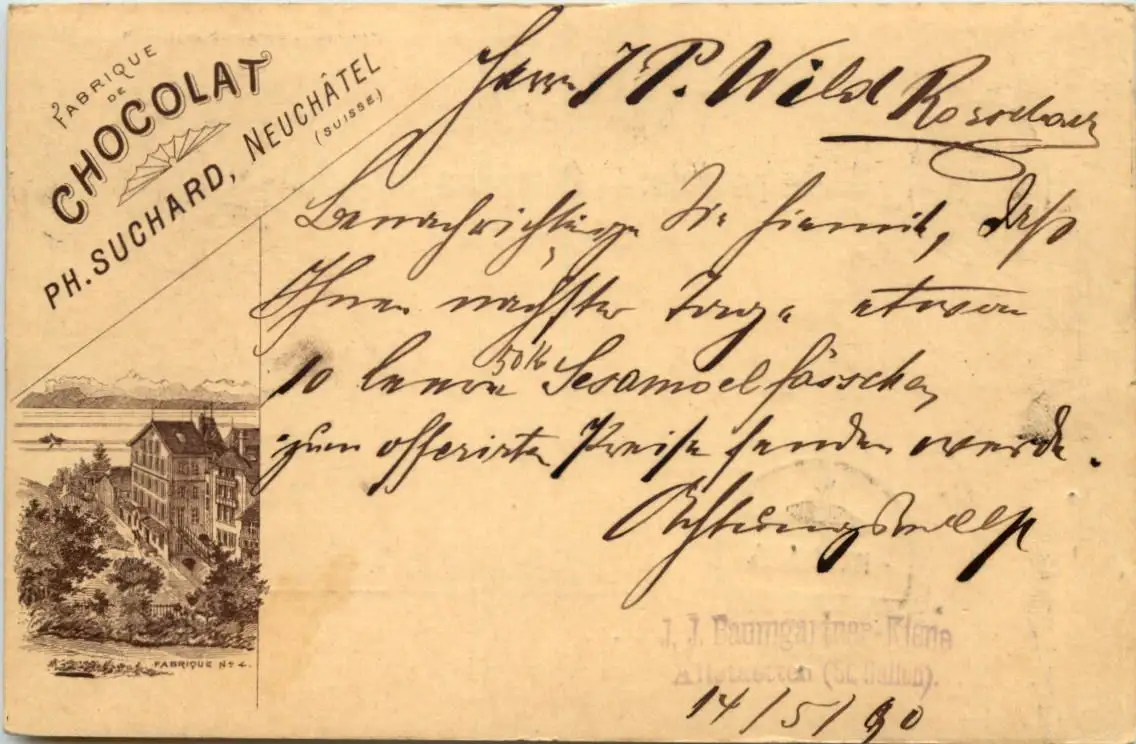 FABRIQUE
DE
CHOCOLAT
PH. SUCHARD, NEUCHÂTEL
(SUISSE)
Herrn J P. Wild Rorschach
Benachrichtige Sie hiemit, daß
Ihnen nächster Tage etwa
10 leere 50 Ko Sesamoelfässchen
zum offerirten Preise senden werde.
Achtungsvollst
J. J. Baumgartner-Kiene
Altstaetten (St. Gallen).
14/5/90
FABRIQUE No 4.